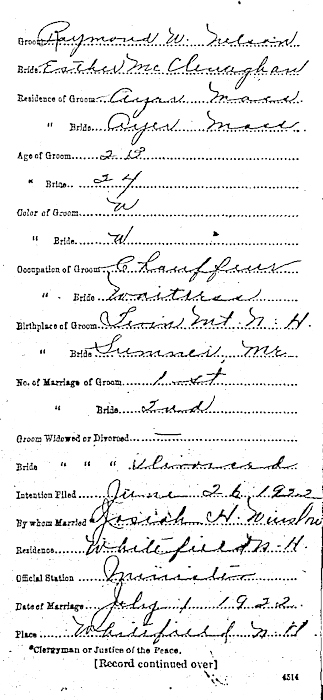 Groom Raymond W. Nelson
Bride Esther McClenaghan
Residence of Groom Ayer Mass
" Bride Ayer Mass
Age of Groom
" Bride 24
Color of Groom W
" Bride W
Occupation of Groom Chauffeur
" Bride Waitress
Birthplace of Groom Twin Mt. N. H.
" Bride Sumner, Me
No. of Marriage of Groom 1st
" Bride 2nd
Groom Widowed or Divorced —
Bride " " " Divorced
Intention Filed June 26, 1922
By whom Married *Josiah H. Winslow
Residence Whitefield N. H
Official Station Minister
Date of Marriage July 1 1922
Place Whitefield N. H
*Clergyman or Justice of the Peace.
[Record continued over]
4514